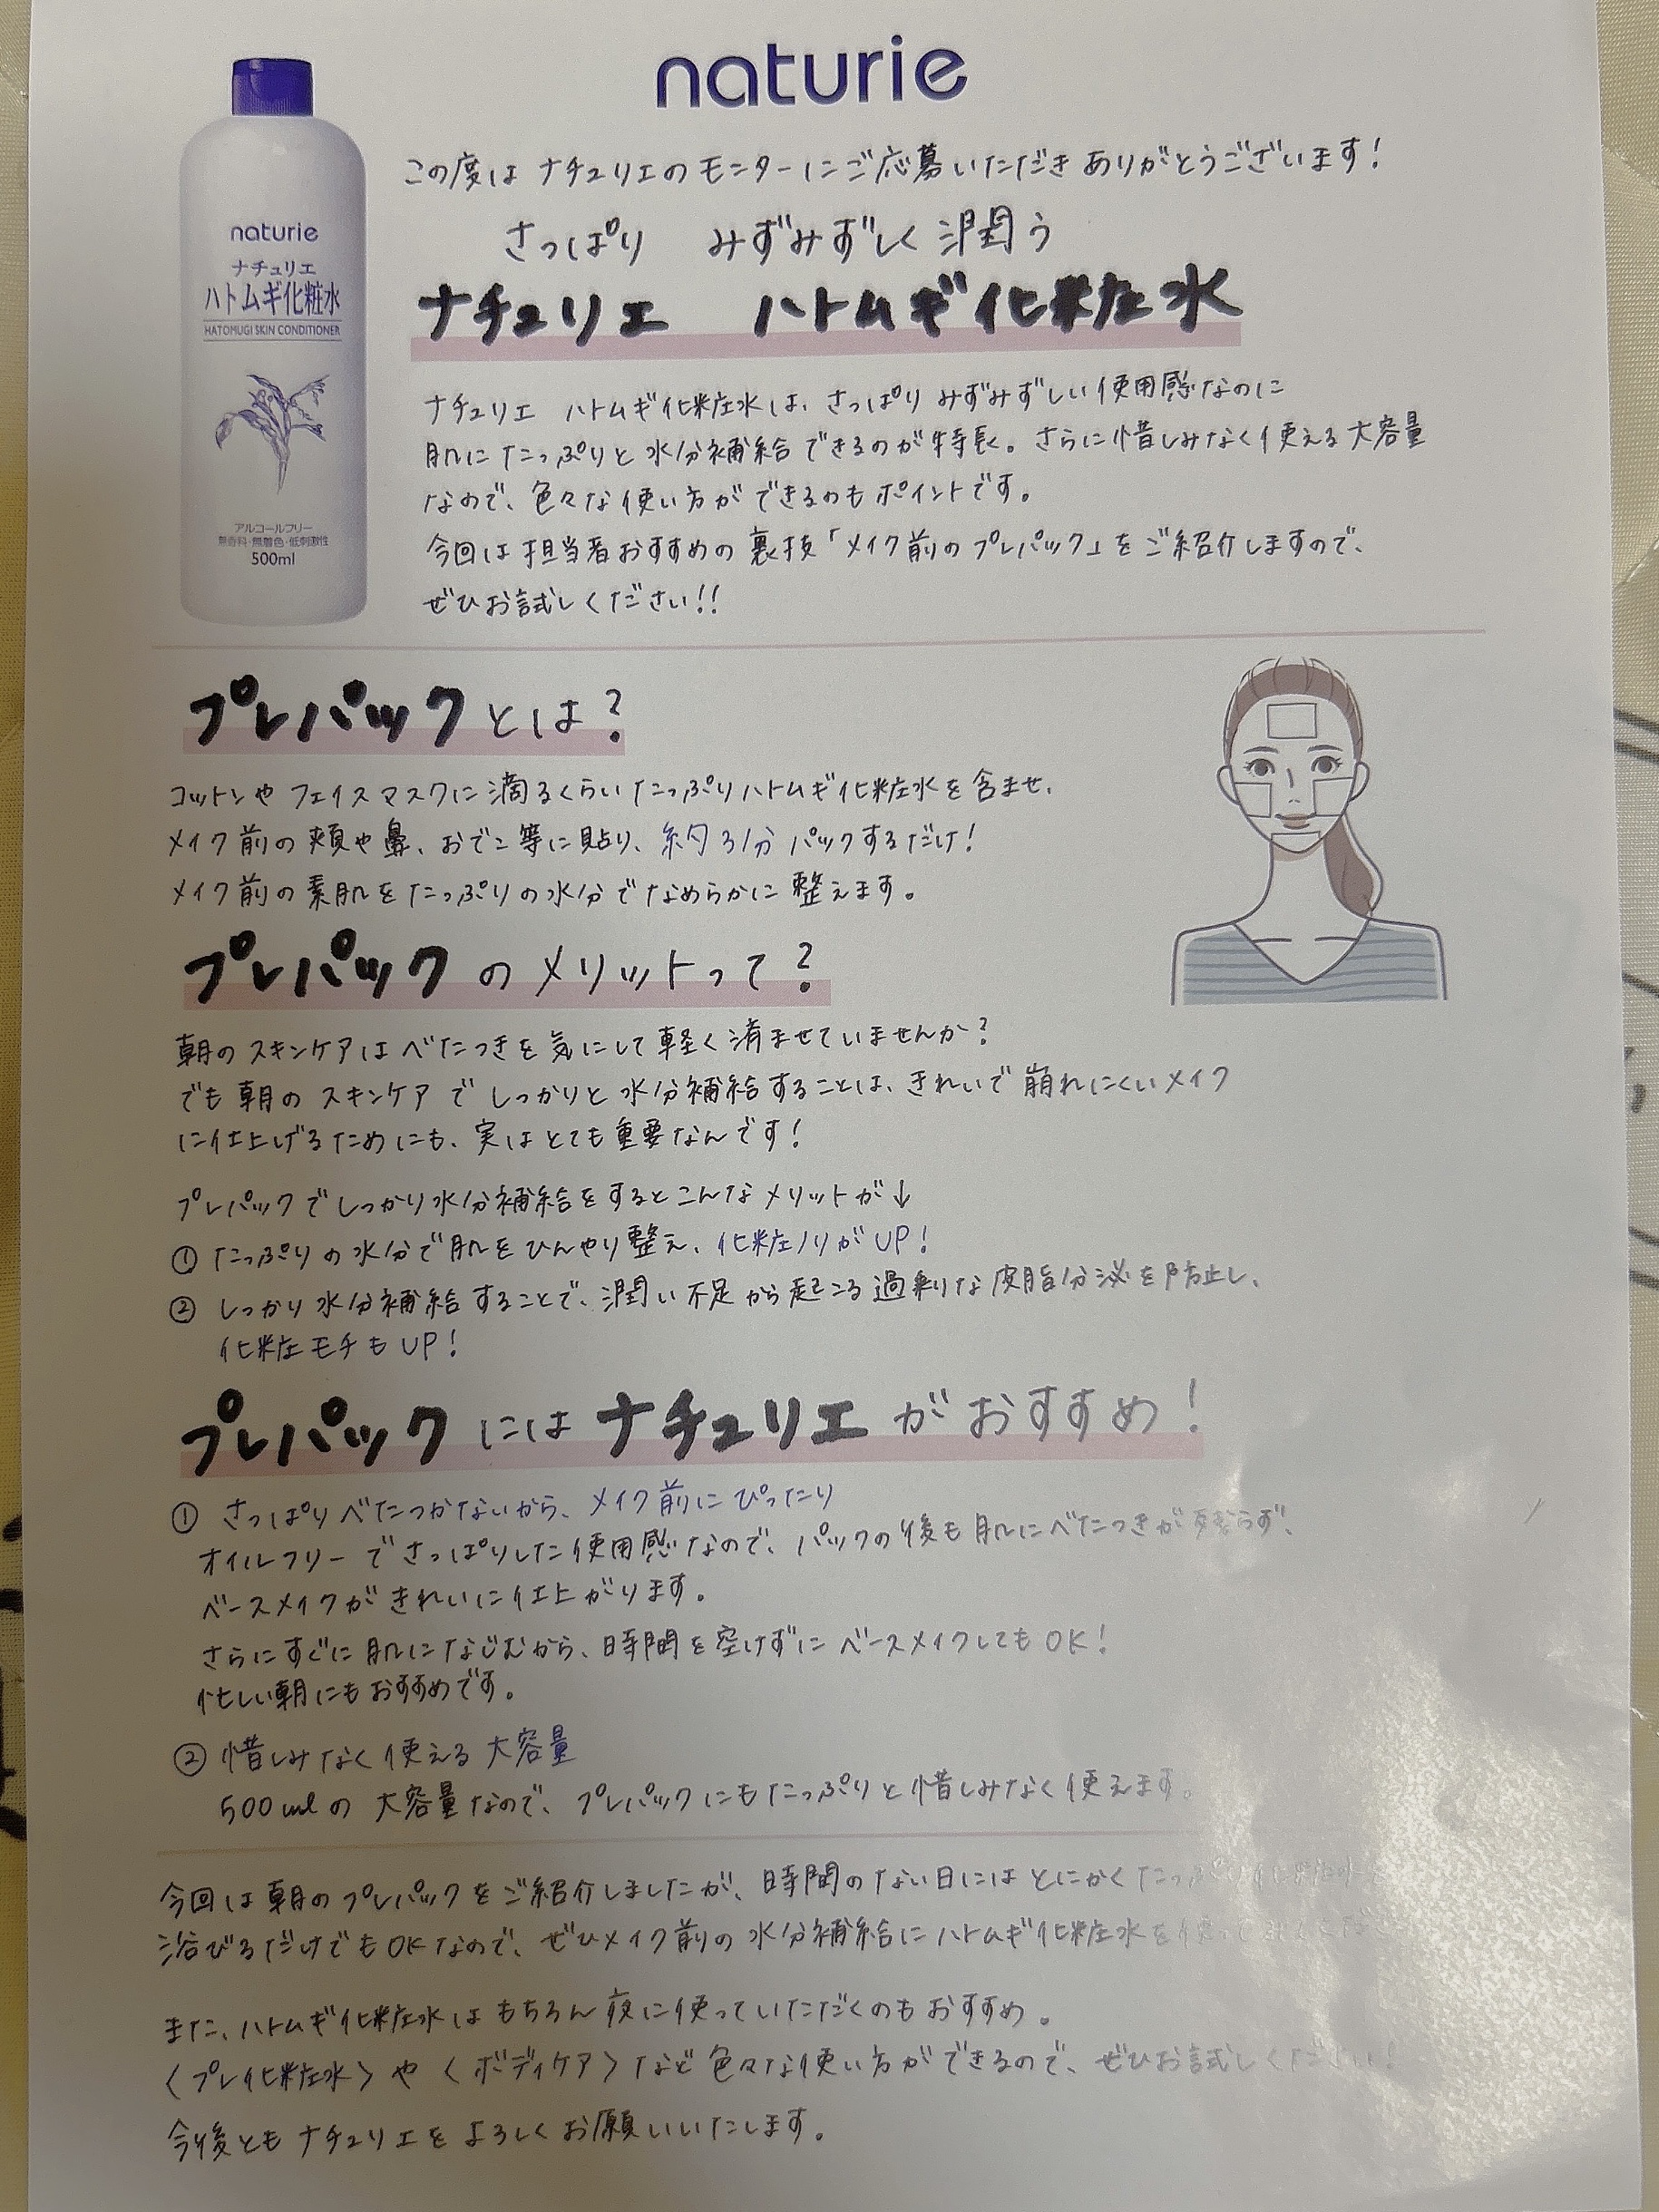 naturie
この度は ナチュリエのモニターにご応募いただきありがとうございます!
さっぱり みずみずしく潤う
ナチュリエ ハトムギ化粧水
naturie
ナチュリエ
ハトムギ化粧水
HATOMUGI SKIN CONDITIONER
アルコールフリー
無香料・無着色・低刺激性
500ml
ナチュリエ ハトムギ化粧水は、さっぱりみずみずしい使用感なのに
肌にたっぷりと水分補給できるのが特長。さらに惜しみなく使える大容量
なので、色々な使い方ができるのもポイントです。
今回は担当者おすすめの裏技「メイク前のプレパック」をご紹介しますので、
ぜひお試しください!!
プレパックとは?
コットンやフェイスマスクに滴るくらいたっぷりハトムギ化粧水を含ませ、
メイク前の頬や鼻、おでこ等に貼り、約3分パックするだけ!
メイク前の素肌をたっぷりの水分でなめらかに整えます。
プレパックのメリットって?
朝のスキンケアはべたつきを気にして軽く済ませていませんか?
でも朝のスキンケアでしっかりと水分補給することは、きれいで崩れにくいメイク
に仕上げるためにも、実はとても重要なんです!
プレパックでしっかり水分補給をするとこんなメリットが↓
① たっぷりの水分で肌をひんやり整え、化粧ノリがUP!
② しっかり水分補給することで、潤い不足から起こる過剰な皮脂分泌を防止し、
化粧モチもUP!
プレパックにはナチュリエがおすすめ!
① さっぱりべたつかないから、メイク前にぴったり
オイルフリーでさっぱりした使用感なので、パックの後も肌にべたつきが残らず、
ベースメイクがきれいに仕上がります。
さらにすぐに肌になじむから、時間を空けずにベースメイクしてもOK!
忙しい朝にもおすすめです。
② 惜しみなく使える大容量
500mlの大容量なので、プレパックにもたっぷりと惜しみなく使えます。
今回は朝のプレパックをご紹介しましたが、時間のない日にはとにかくたっぷり
浴びるだけでもOKなので、ぜひメイク前の水分補給にハトムギ化粧水を
また、ハトムギ化粧水はもちろん夜に使っていただくのもおすすめ。
〈プレ化粧水〉や〈ボディケア〉など色々な使い方ができるので、ぜひお試しください!
今後ともナチュリエをよろしくお願いいたします。